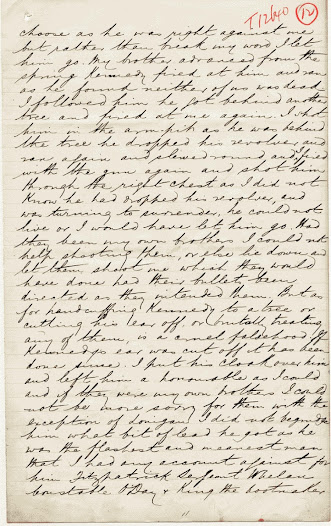 T1260
12
choose as he was right against me
but rather than break my word I let
him go. My brother advanced from the
spring Kennedy fired at him and ran
as he found neither of us was dead
I followed him he got behind another
tree and fired at me again. I shot
him in the armpit as he was behind
the tree he dropped his revolver and
ran again and slewed round and I fired
with the gun again and shot him
through the right chest as I did not
know he had dropped his revolver, and
was turning to surrender, he could not
live or I would have let him go. Had
they been my own brothers I could not
help shooting them, or else lie down and
let them shoot me which they would
have done had their bullets been
directed as they intended them. But as
for handcuffing Kennedy to a tree or
cutting his ear off, or brutally treating
any of them, is a cruel falsehood If
Kennedys ear was cut off it has been
done since. I put his cloak over him
and left him as honourable as I could
and if they were my own brothers I could
not be more sorry for them with the
exception of Lonigan I did not begrudge
him what bit of lead he got as he
was the flashest and meanest man
that I had any account against for
him Fitzpatrick Sergent Whelan
Constable O'Day & King the bootmaker
11